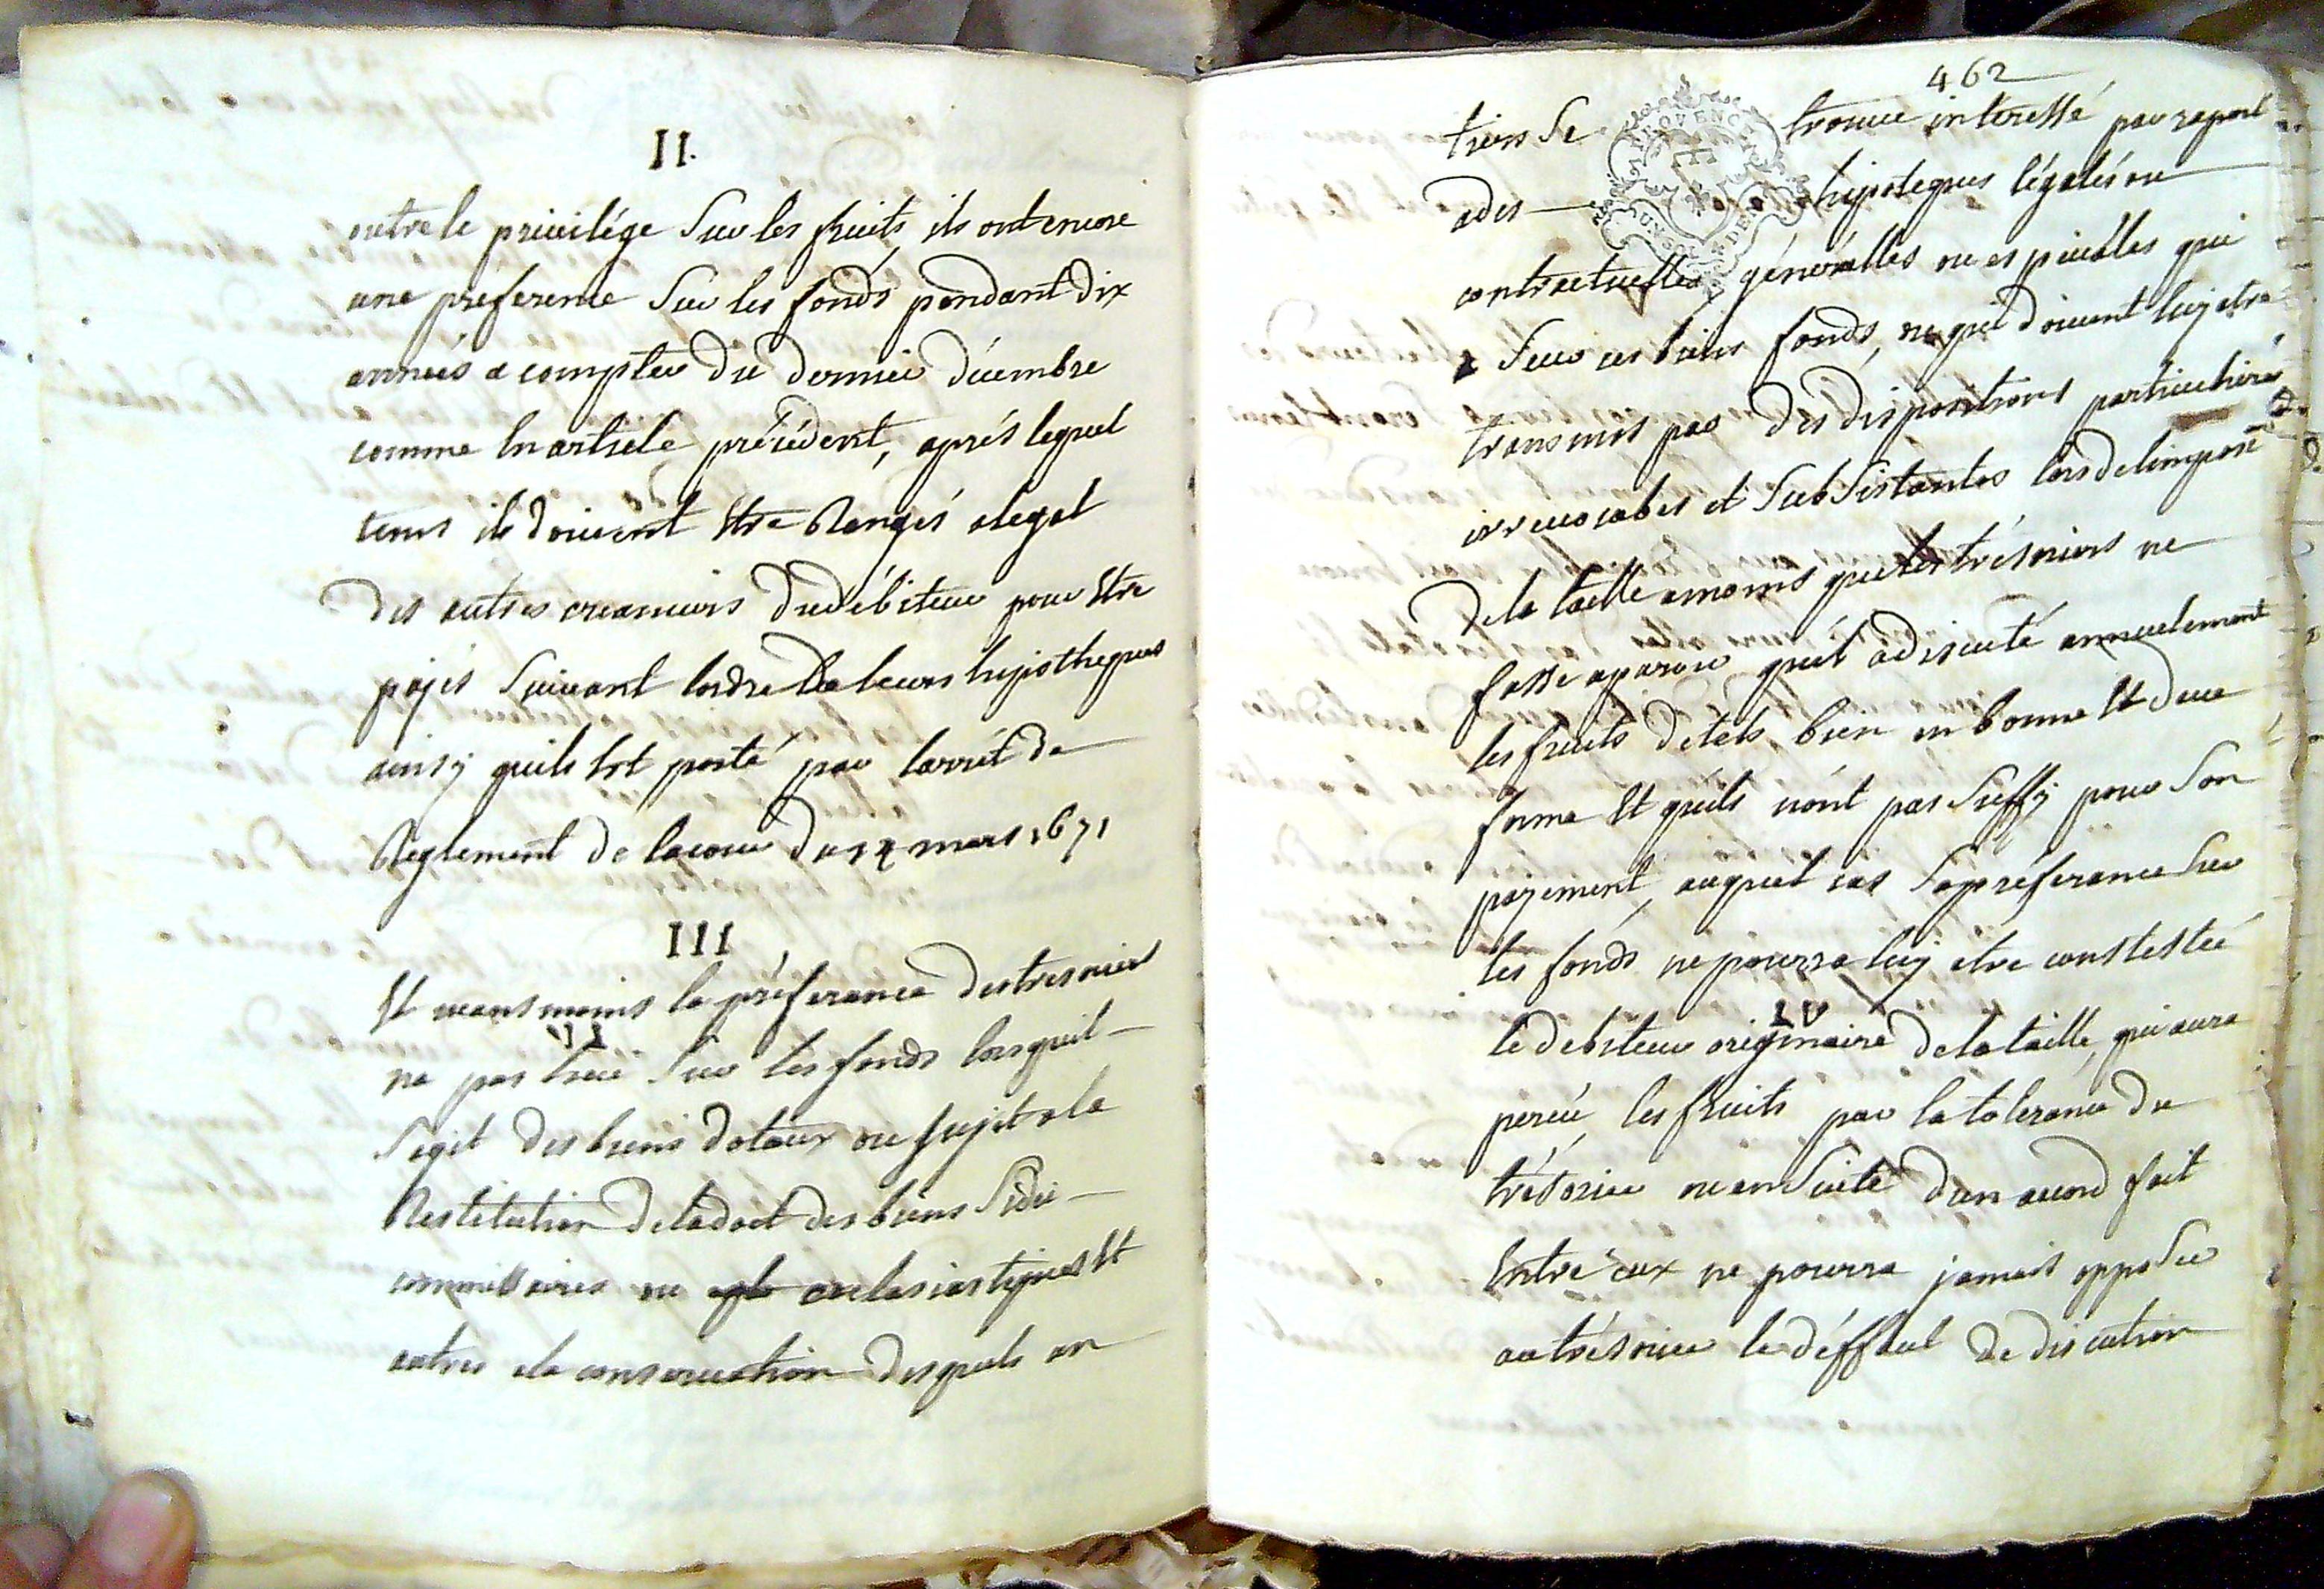 II.
outre le privilége Sur les fruits, ils ont encore
une préference Sur les fonds pendant dix
années a compter du dernier décembre
comme En article précédent, aprés lequel
tems ils doivent Etre Rangés alegal
des autres creanciers du débiteur pour Etre
payés Suivant lordre de leurs hypotheques
ainsy quils Est porté par larrét de
Reglement de lacour du mars 1671
III
Et neansmoins la préferance des tresorier
na pas lieu Sur les fonds lorsquil
Sagit des biens dotaux ou Sujet ala
Restitution deladot des biens fidei
commissaires ou eclesiastiques Et
autres ala conservation desquels un
462
tiers Se trouve interessé par raport
ades hipoteques légales ou
contractuelles, générálles ou espéciáles qui
Sur ces biens fonds, ou qui doivent luy etre
transmis par des dispositions particulieres
irrevocabes et SubSistantes lors delimposi
dela taille amoins que les trésoriers ne
fasse aparoir quil a discuté annuelement
les fruits detels bien en bonne Et due
forme Et quils nónt pas Suffy pour Son
payement, auquel cas Sa préferance Sur
les fonds ne pourra luy etre constestée
IV
le debiteur originaire dela taille, qui aura
percú les fruits par la tolerance du
trésorier ou en Suite dun acord fait
Entre eux ne pourra jamais oppoSer
au trésorier le déffaut de discution